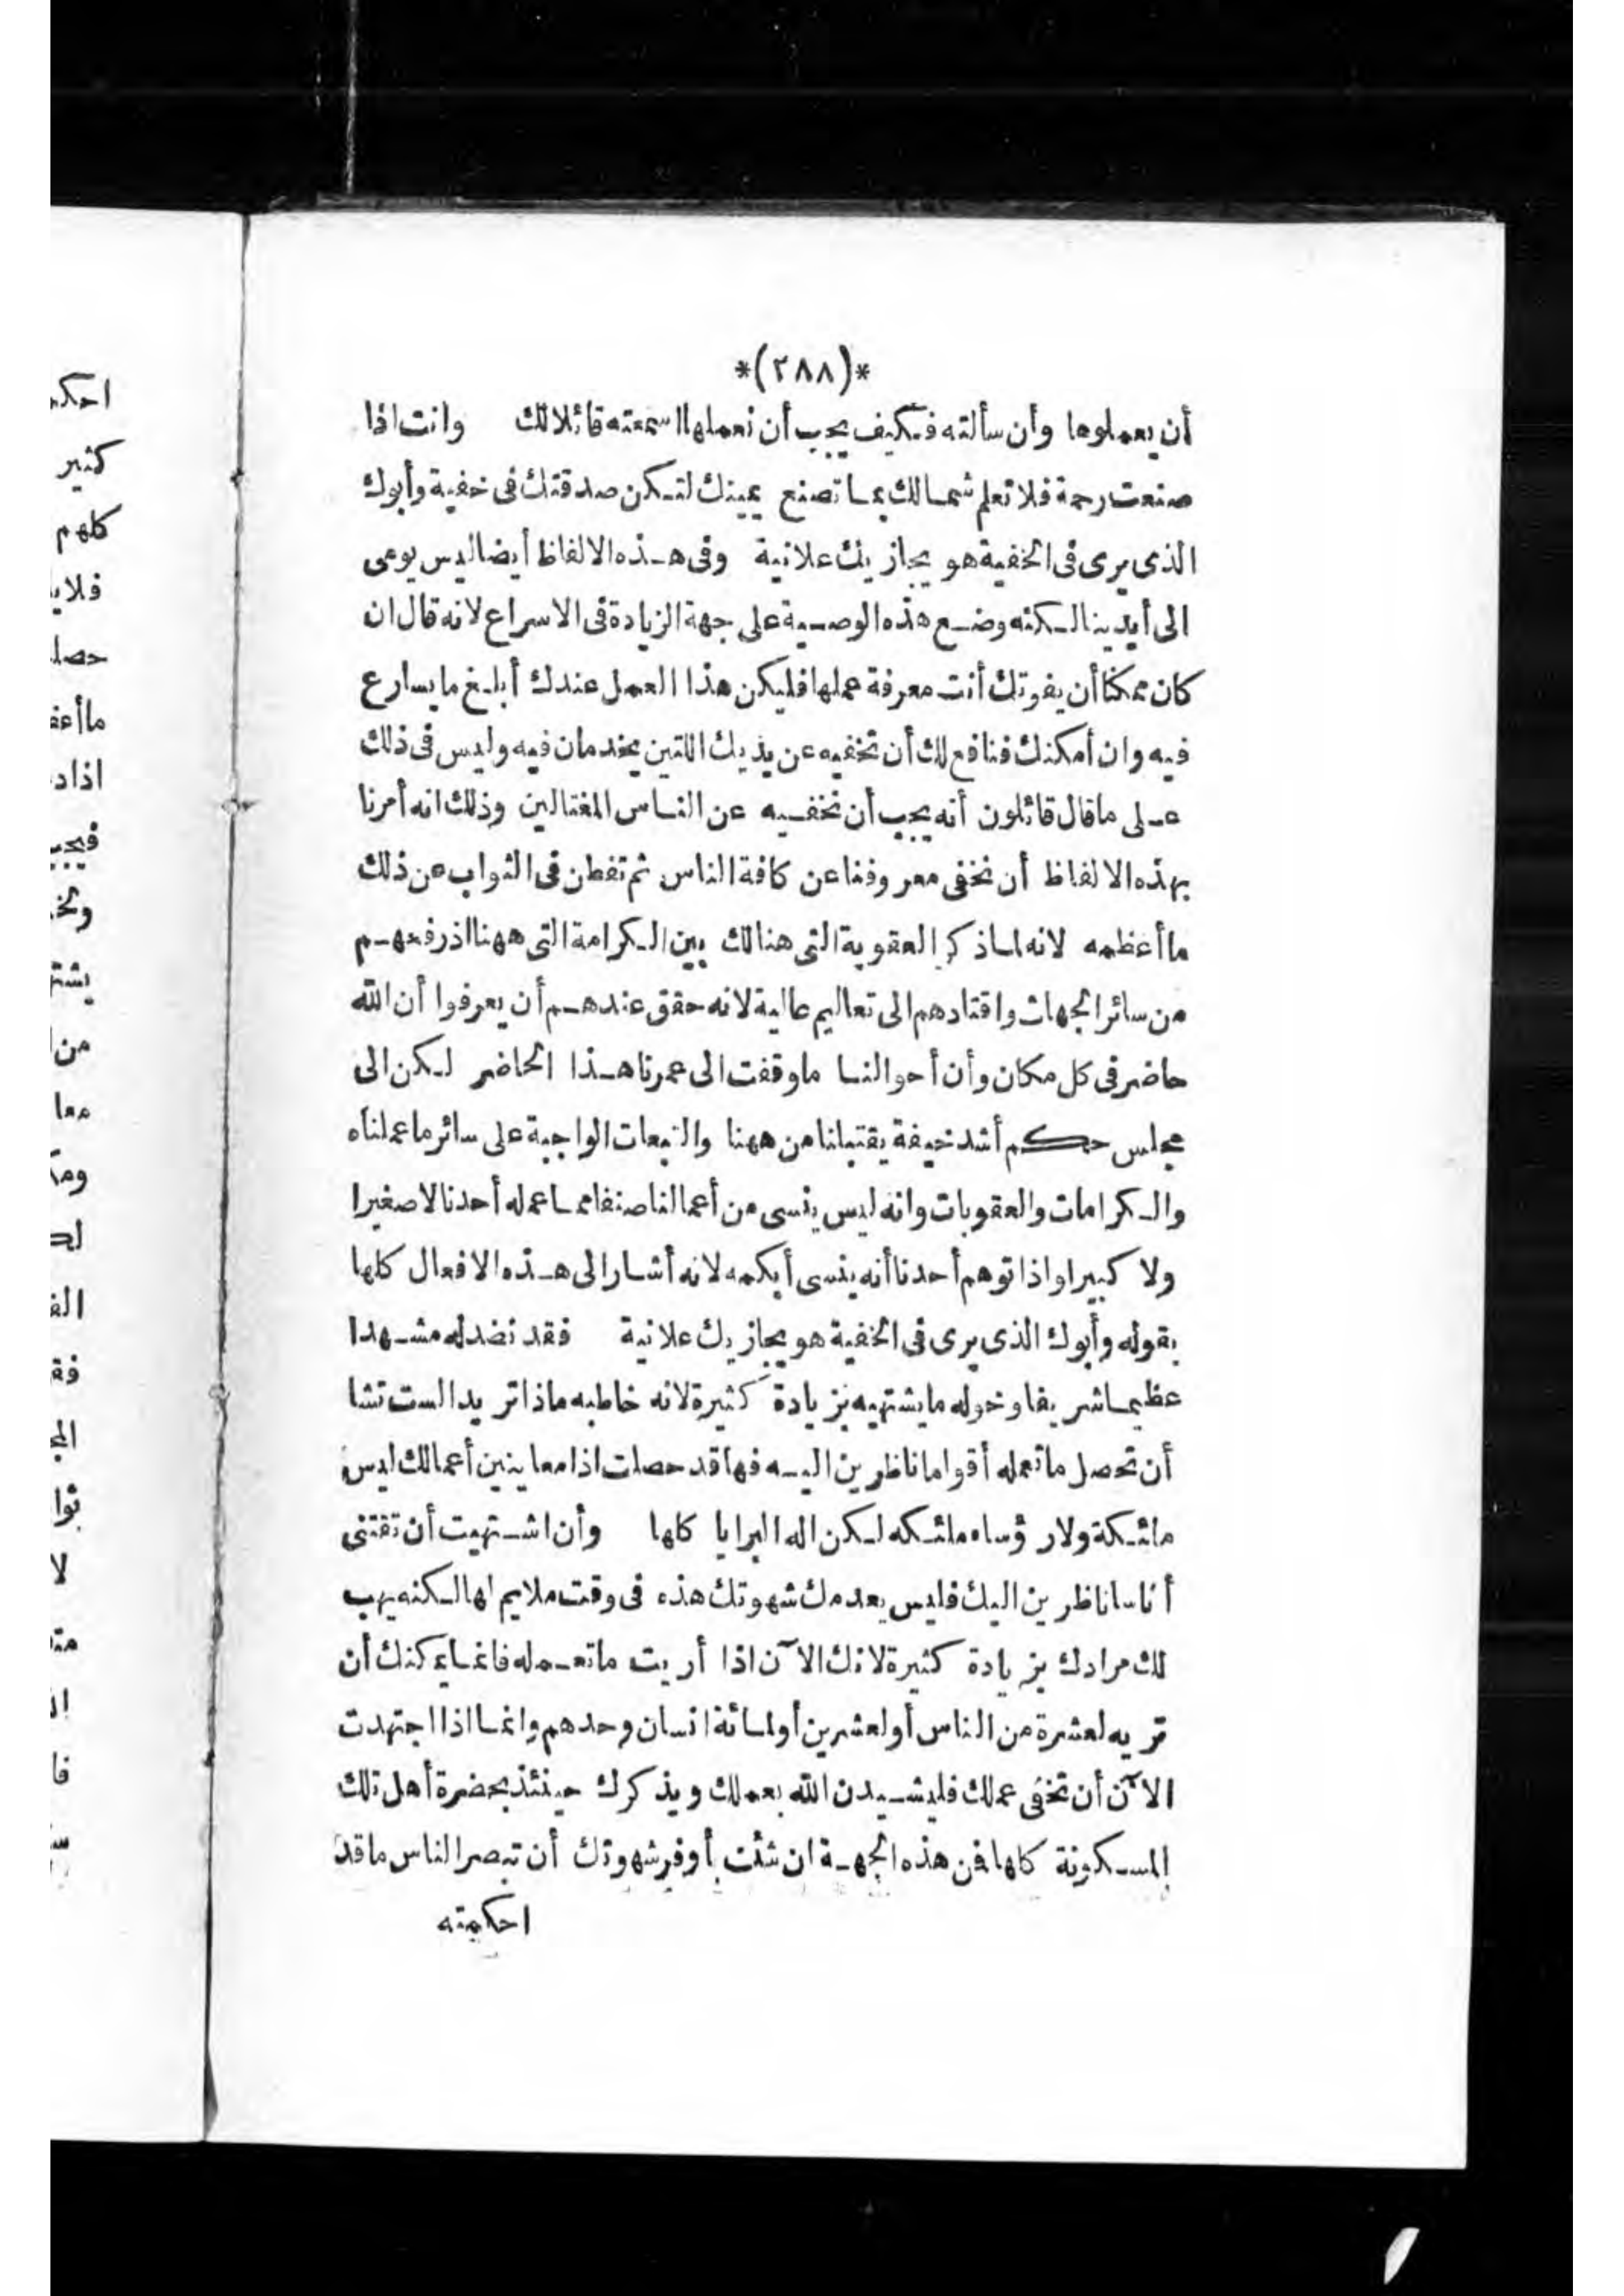 *(٢٨٨)*
أن يعملوها وأن سألته فكيف يجب أن نعملها اسمعته قائلا لك وانت اذا
صنعت رحمة فلا تعلم شمالك بما تصنع يمينك لتكن صدقتك فى خفية وأبوك
الذى يرى فى الخفية هو يجازيك علانية وفى هذه الالفاظ أيضا ليس يومى
الى أيدينا لكنه وضع هذه الوصية على جهة الزيادة فى الاسراع لانه قال ان
كان ممكنا أن يفوتك أنت معرفة عملها فليكن هذا العمل عندك أبلغ ما يسارع
فيه وان أمكنك فنافع لك أن تخفيه عن يديك اللتين يخدمان فيه وليس فى ذلك
على ما قال قائلون أنه يجب أن نخفيه عن الناس المغتالين وذلك انه أمرنا
بهذه الالفاظ أن نخفى معروفنا عن كافة الناس ثم تفطن فى الثواب عن ذلك
ما أعظمه لانه لما ذكر العقوبة التى هنالك بين الكرامة التى ههنا اذ رفعهم
من سائر الجهات واقتادهم الى تعاليم عالية لانه حقق عندهم أن يعرفوا أن الله
حاضر فى كل مكان وأن أحوالنا ما وقفت الى عمرنا هذا الحاضر لكن الى
مجلس حكم أشد خيفة يقتبلنا من ههنا والتبعات الواجبة على سائر ما عملناه
والكرامات والعقوبات وانه ليس ينسى من أعمالنا صنفا مما عمله أحدنا لا صغيرا
ولا كبيرا واذا توهم أحدنا أنه ينسى أيكمه لانه أشار الى هذه الافعال كلها
بقوله وأبوك الذى يرى فى الخفية هو يجازيك علانية فقد نضد له مشهدا
عظيما شريفا وخوله ما يشتهيه بزيادة كثيرة لانه خاطبه ماذا تريد الست تشا
أن تحصل ما تعمله أقواما ناظرين اليه فها قد حصلت اذا معاينين أعمالك ليس
مائكة ولا رؤساء ملئكه لكن اله البرايا كلها وأن اشتهيت أن تقتنى
أناسا ناظرين اليك فليس يعدمك شهوتك هذه فى وقت ملايم لها لكنه يهب
لك مرادك بزيادة كثيرة لانك الآن اذا أريت ما تعمله فانما يمكنك أن
تريه لعشرة من الناس أو لعشرين أو لمائة انسان وحدهم وانما اذا اجتهدت
الآن أن تخفى عملك فليشيدن الله بعملك ويذكرك حينئذ بحضرة أهل تلك
المسكونة كلها فمن هذه الجهة ان شئت بأوفر شهوتك أن تبصر الناس ما قد
احكمته